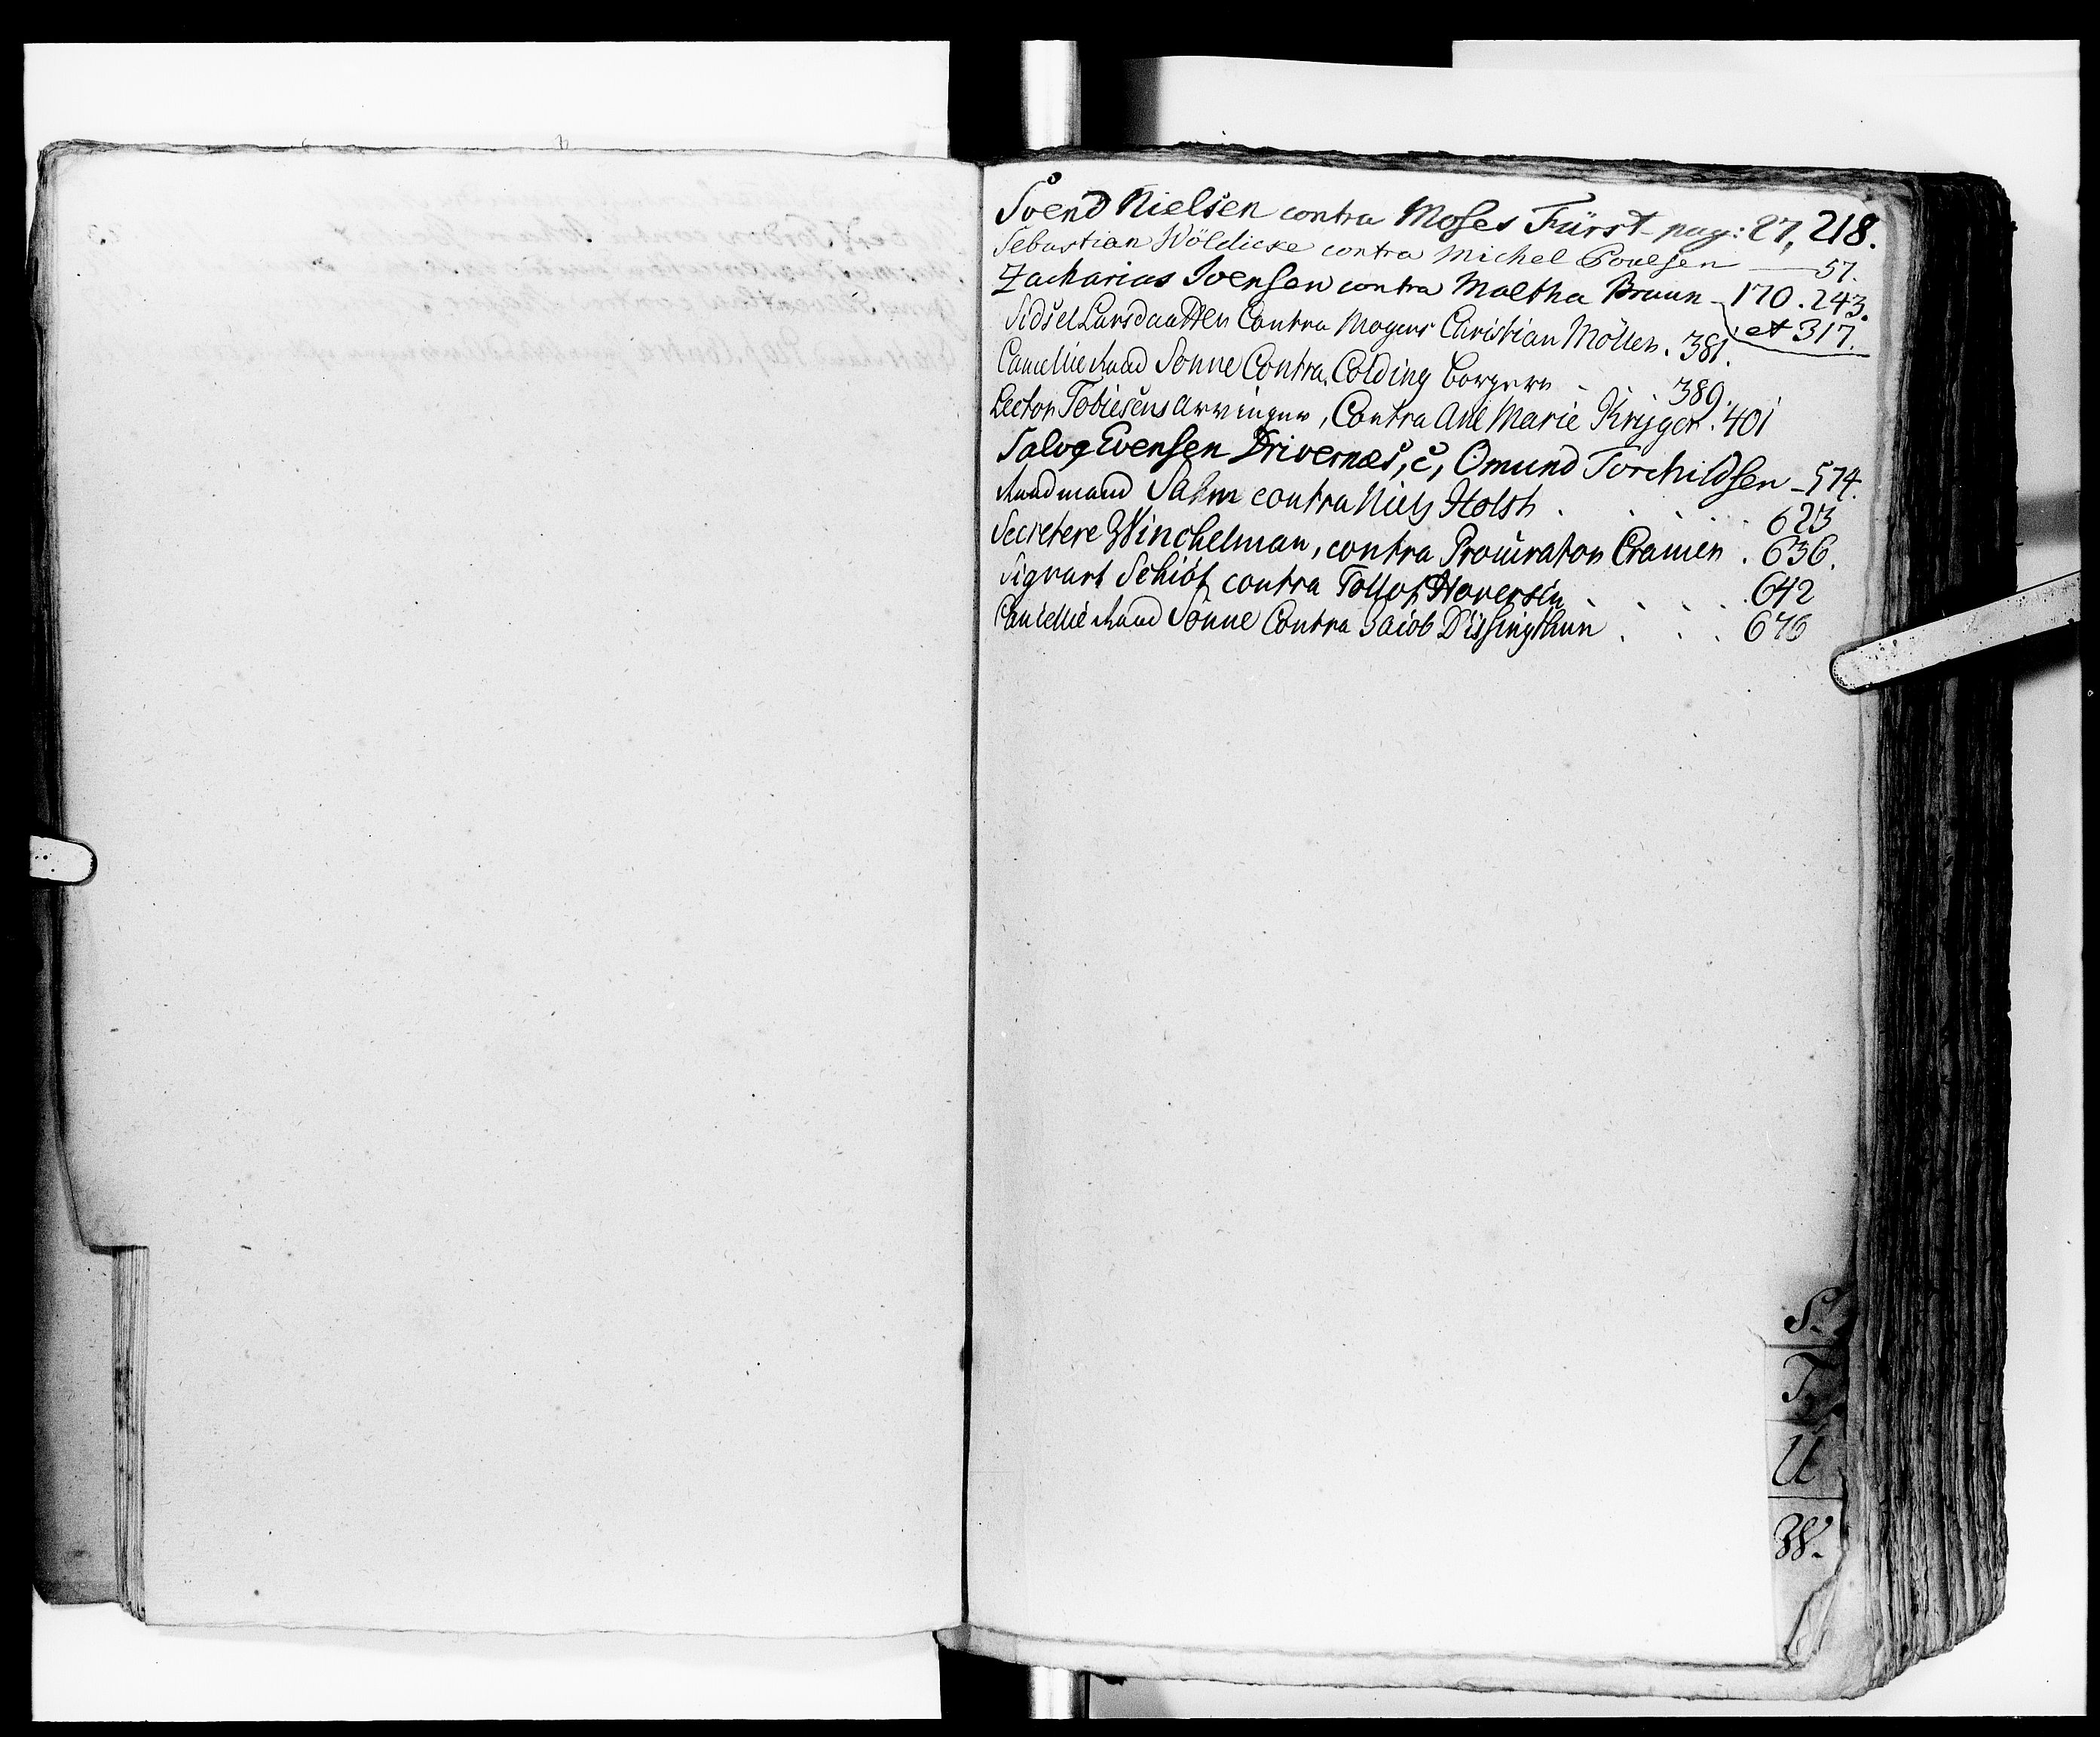 Svend Nielsen contra Moses Fürst pag: 27, 218.
Sebastian Wöldicke contra Michel Poulsen — 57.
Zacharias Svensen contra Maltha Bruun - 170. 243.
et 317.
Sidsel Larsdaatter Contra Mogens Christian Möller. 381.
Cancellie Raad Sonne Contra Colding Borgere - 389.
Lector Tobiesens Arvinger, Contra Ane Marie Krüger. 401
Salve Evensen Drivernæs, c, Omund Torchildsen - 574.
Raadmand Sahm contra Niels Holst . . . . 623
Secretere Winchelman, contra Procurator Cramer . 636.
Sigvart Schiöt contra Tollof Haversen . . . . 642
Cancellie Raad Sonne Contra Jacob Dissingthun . . . 676
S.
T.
U
W.